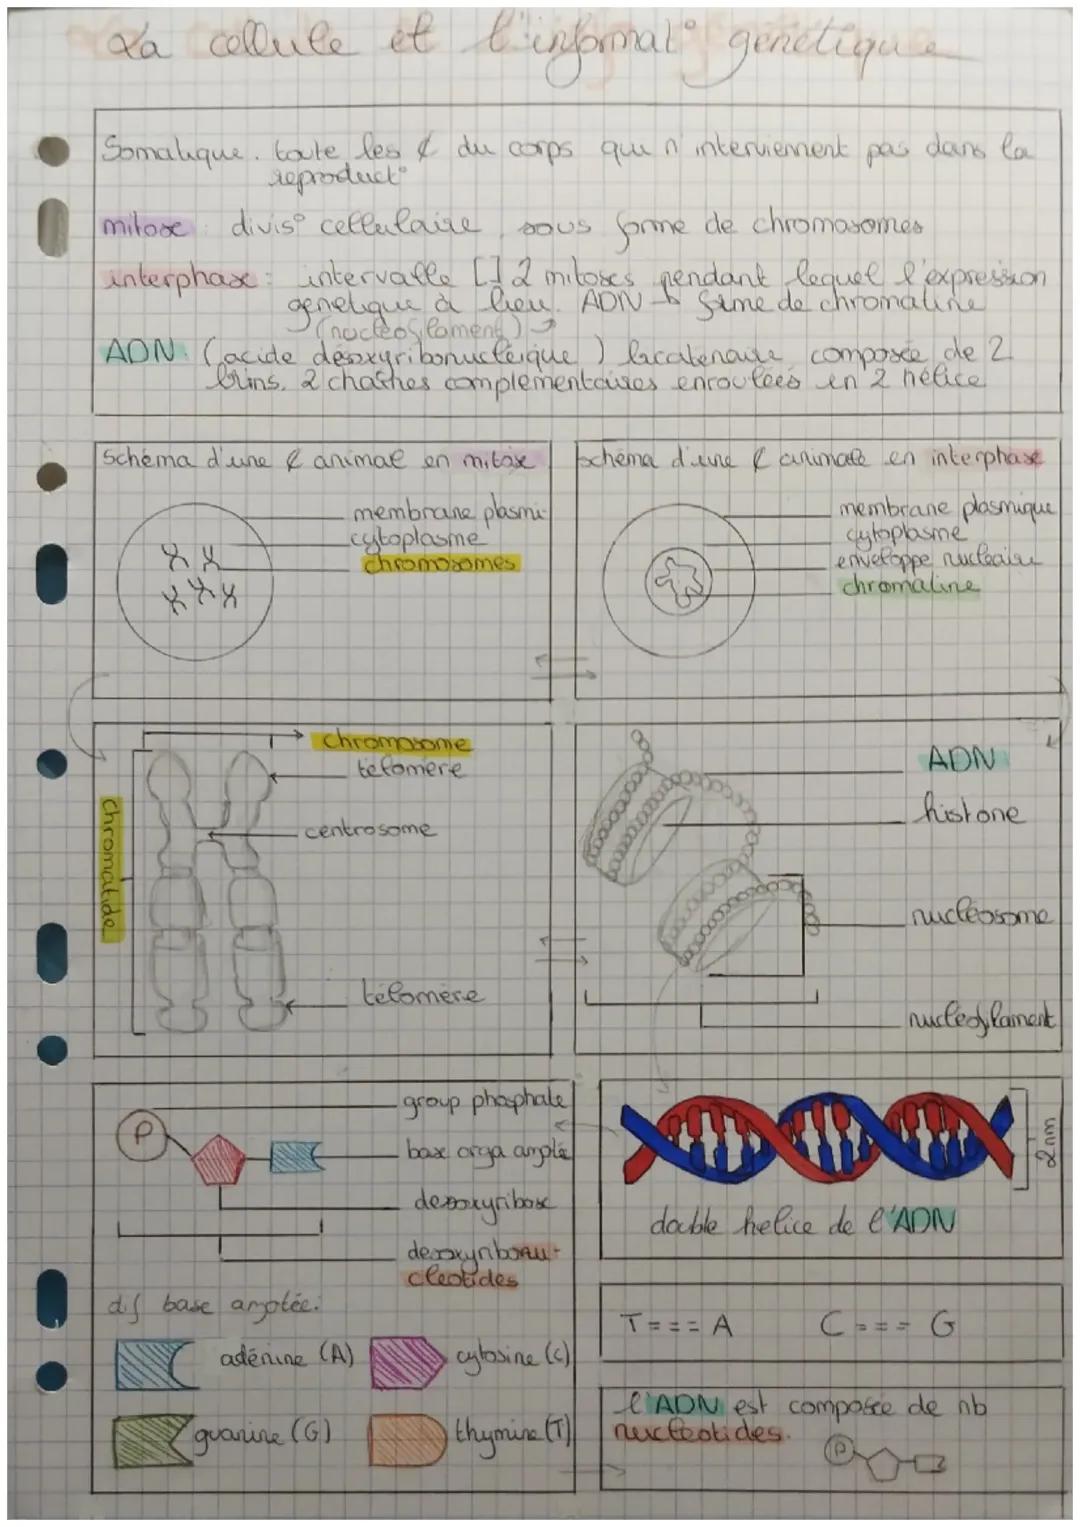 La cellule et l'informat° génétique
Somatique. toute les ¢ du corps qui n'interviennent pas dans la
reproduct°
mitose : divis° cellulaire, sous forme de chromosomes
interphase : intervalle [-] 2 mitoses pendant lequel l'expression
genetique à lieu. ADN → forme de chromatine
(nucléofilament)
ADN : (acide désoxyribonucléique) bicatenaire composée de 2
brins, 2 chaînes complémentaires enroulées en 2 hélice
Schéma d'une ¢ animal en mitose
membrane plasmi-
cytoplasme
chromosomes
schéma d'une ¢ animale en interphase
membrane plasmique
cytoplasme
enveloppe nucléaire
chromatine
chromosome
télomère
centrosome
chromatide
télomère
ADN
histone
nucléosome
nucléofilament
P
group phosphate
base orga azotée
desoxyribose
desoxyribonu-
cleotides
dif base azotée:
adénine (A)
cytosine (C)
guanine (G)
thymine (T)
2 nm
double helice de l'ADN
T = = = A C = = = G
l'ADN est composée de nb
nucleotides.
P